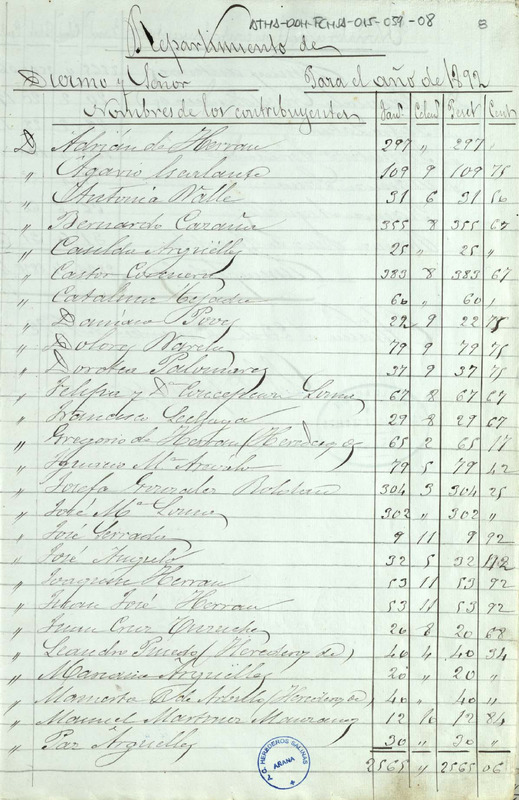 ATHA-DAH-FCHSA-015-059-08 8
Repartimiento de
Diezmo y Señor Para el año de 1892
Nombres de los contribuyentes Fan.s Celem.s Peset.s Cent.s
D. Adrián de Herrán 297 " 297 "
" Agavio Escalante 109 9 109 75
" Antonia Valle 31 6 31 50
" Bernardo 355 8 355 67
" Casilda Argüelles 25 " 25 "
" Castor 383 8 383 67
" Catalina Tejada 60 " 60 "
" Damiana Poves 22 9 22 75
" Dolores Varela 79 9 79 75
" Dorotea Palomares 37 9 37 75
" Felipa y Dª Concepcion 67 8 67 67
" Francisco 29 8 29 67
" Gregorio de Herran (Herederos de 65 2 65 17
" Ignacio Mª Arévalo 79 5 79 42
" Josefa Gonzalez 304 3 304 25
" José Mª 302 " 302 "
" José 9 11 9 92
" José Angulo 32 5 32 42
" Joaquin Herran 53 11 53 92
" Juan José Herran 53 11 53 92
" Juan Cruz 20 8 20 68
" Leandro Pinedo (Herederos de) 40 4 40 34
" Argüelles 20 " 20 "
" Mamerto (Herederos de) 40 " 40 "
" Manuel Martinez 12 10 12 84
" Paz Argüelles 30 " 30 "
2565 " 2565 06
C. G. HEREDEROS SALINAS
ARANA